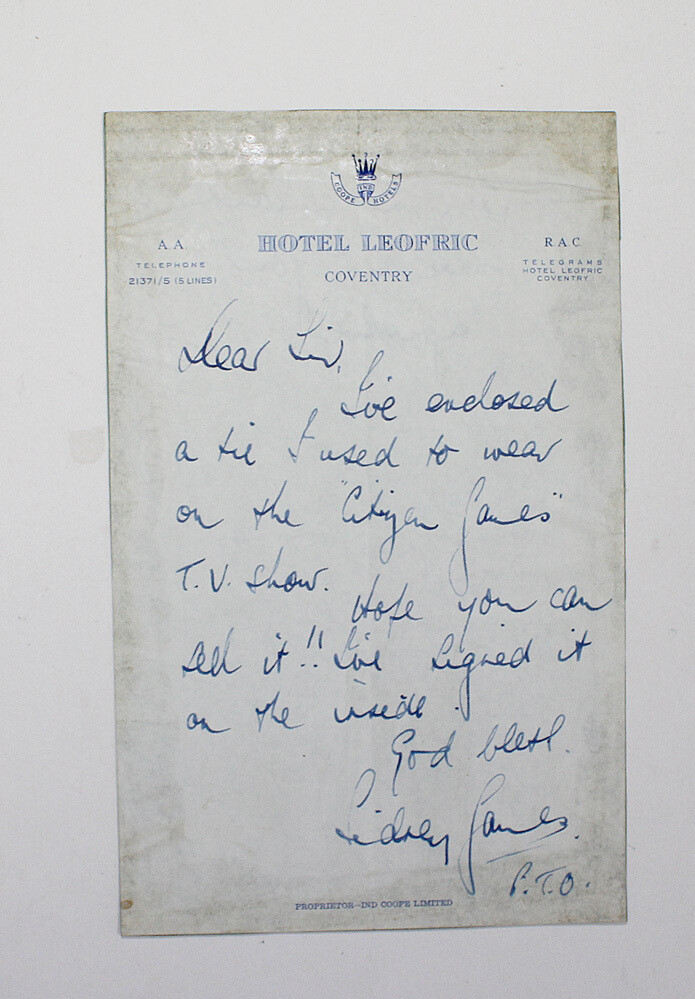 IND
COOPE HOTELS
A.A.
TELEPHONE
21371/5 (5 LINES)
HOTEL LEOFRIC
COVENTRY
R.A.C.
TELEGRAMS
HOTEL LEOFRIC
COVENTRY
Dear Sir,
I've enclosed
a tie I used to wear
on the "Citizen James"
T.V. show.
Hope you can
sell it!! I've signed it
on the inside.
God bless.
Sidney James.
P.T.O.
PROPRIETOR—IND COOPE LIMITED